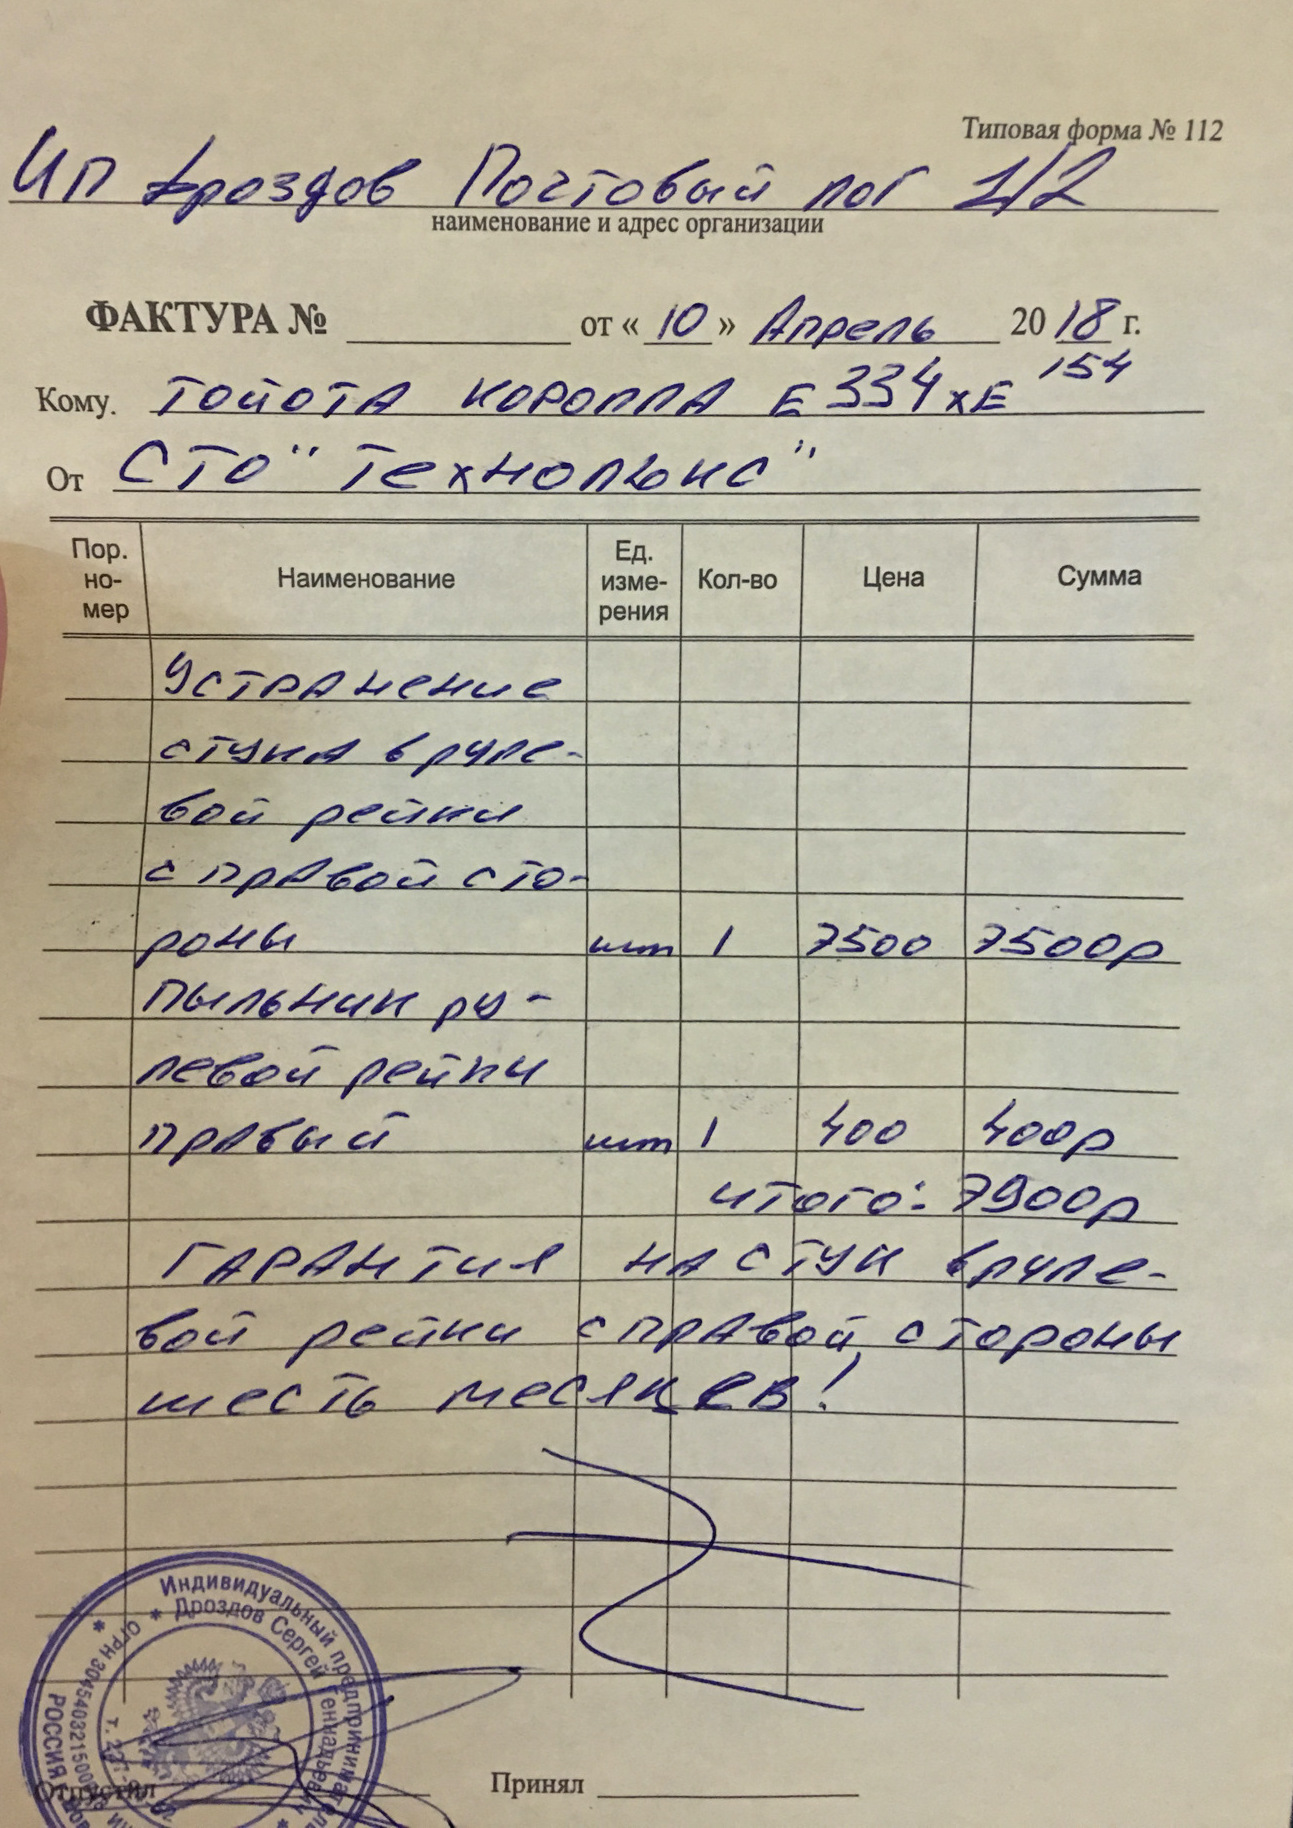 Типовая форма № 112
ИП Дроздов Постовый пог 1/2
наименование и адрес организации
ФАКТУРА № от « 10 » Апрель 20 18 г.
Кому. ТОЙОТА КОРОЛЛА Е 334 ХЕ 154
От СТО "Технолюкс"
Пор. но- мер Наименование Ед. изме- рения Кол-во Цена Сумма
Устранение
стука в руле-
вой рейки
с правой сто-
роны шт 1 7500 7500р
Пыльник ру-
левой рейки
правый шт 1 400 400р
итого: 7900р
Гарантия на стук в руле-
вой рейки с правой стороны
шесть месяцев!
Индивидуальный
Дроздов Сергей Геннадьевич
ОГРН
РОССИЯ
Отпустил Принял